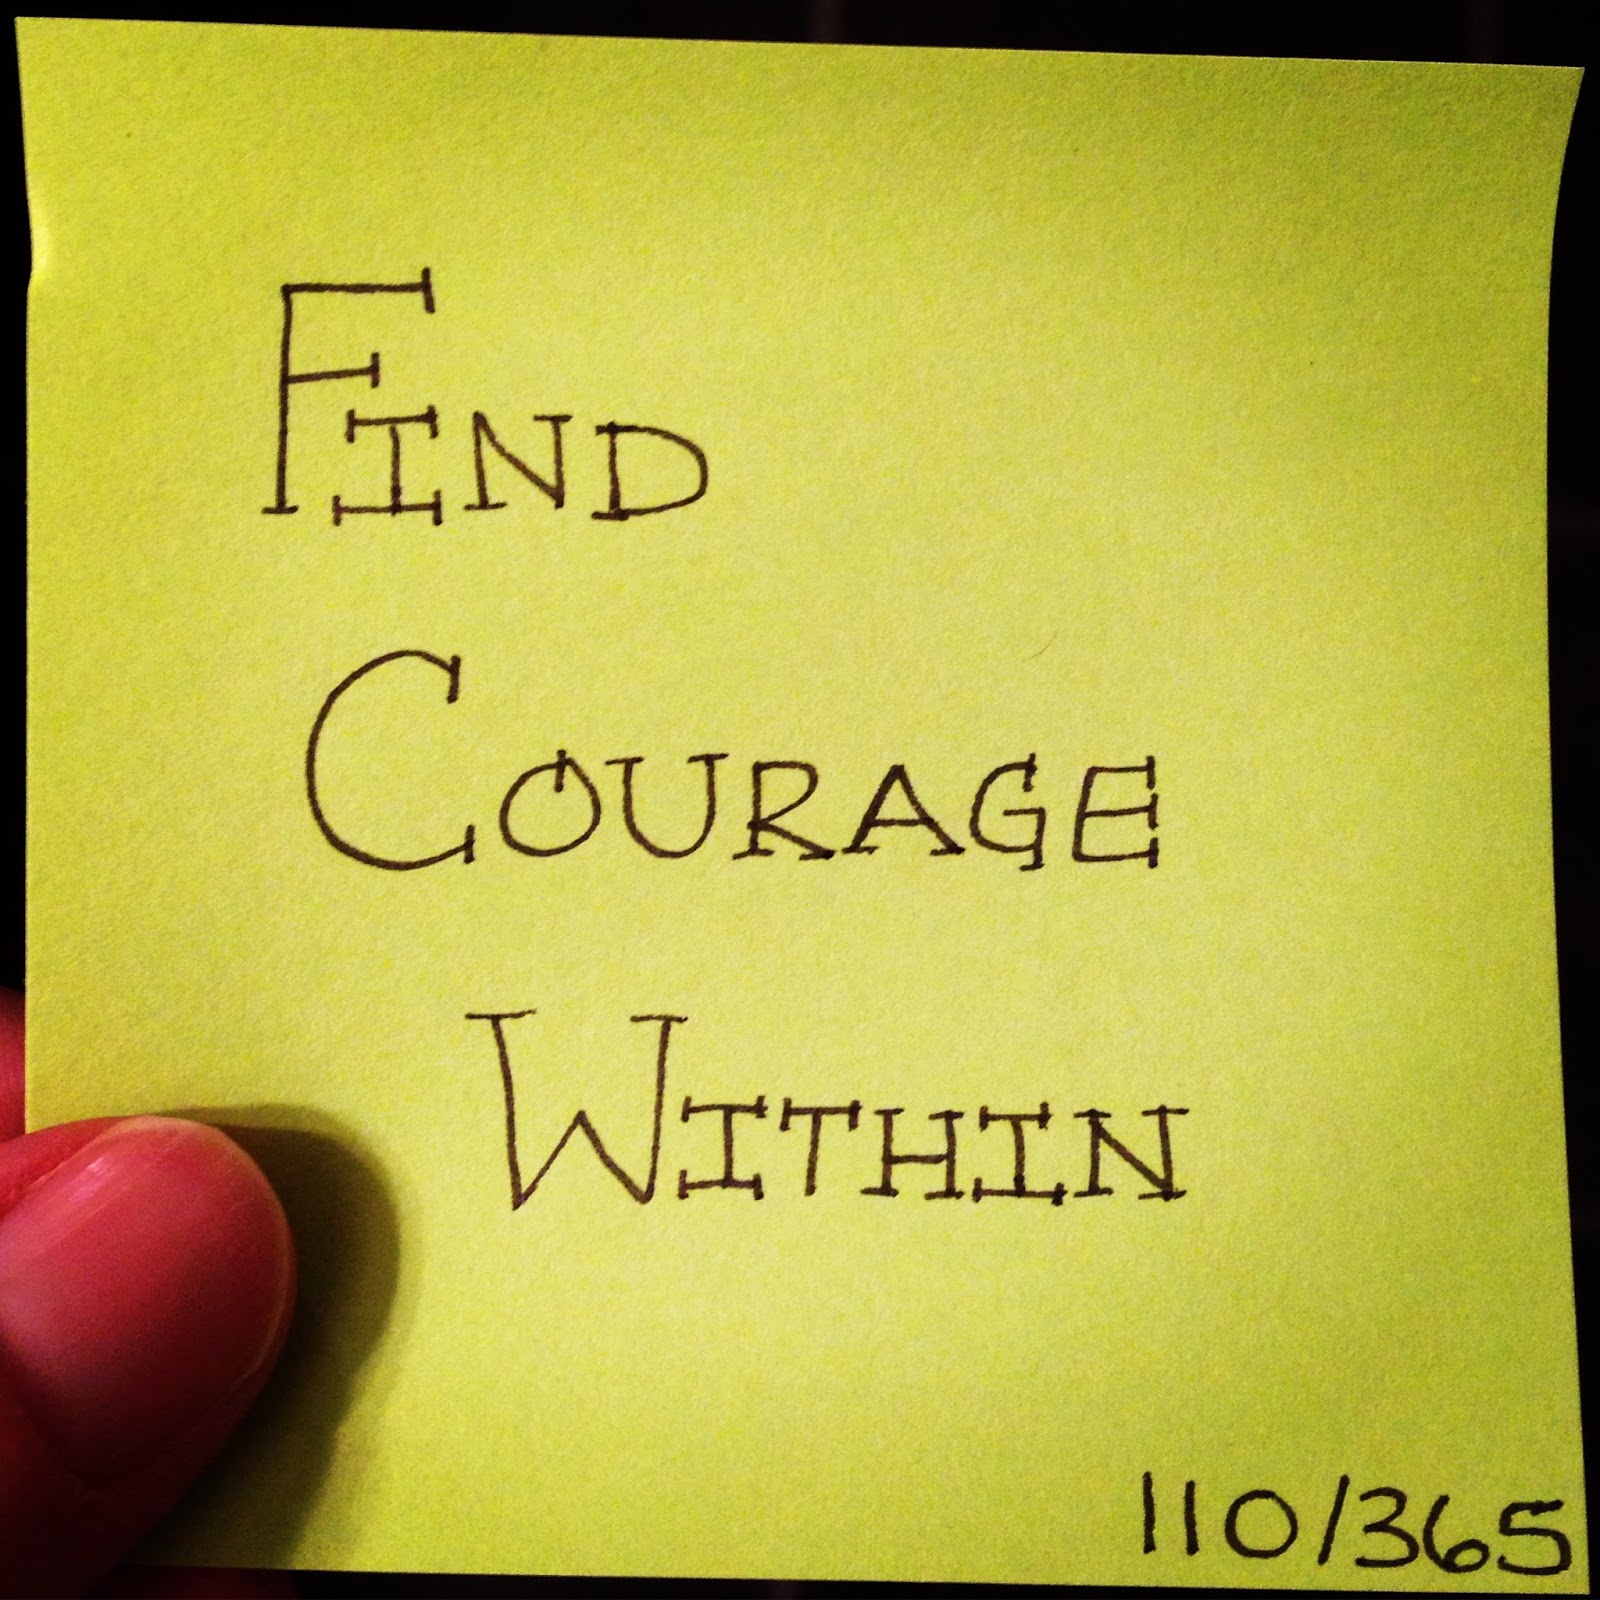 Find
Courage
Within
110/365